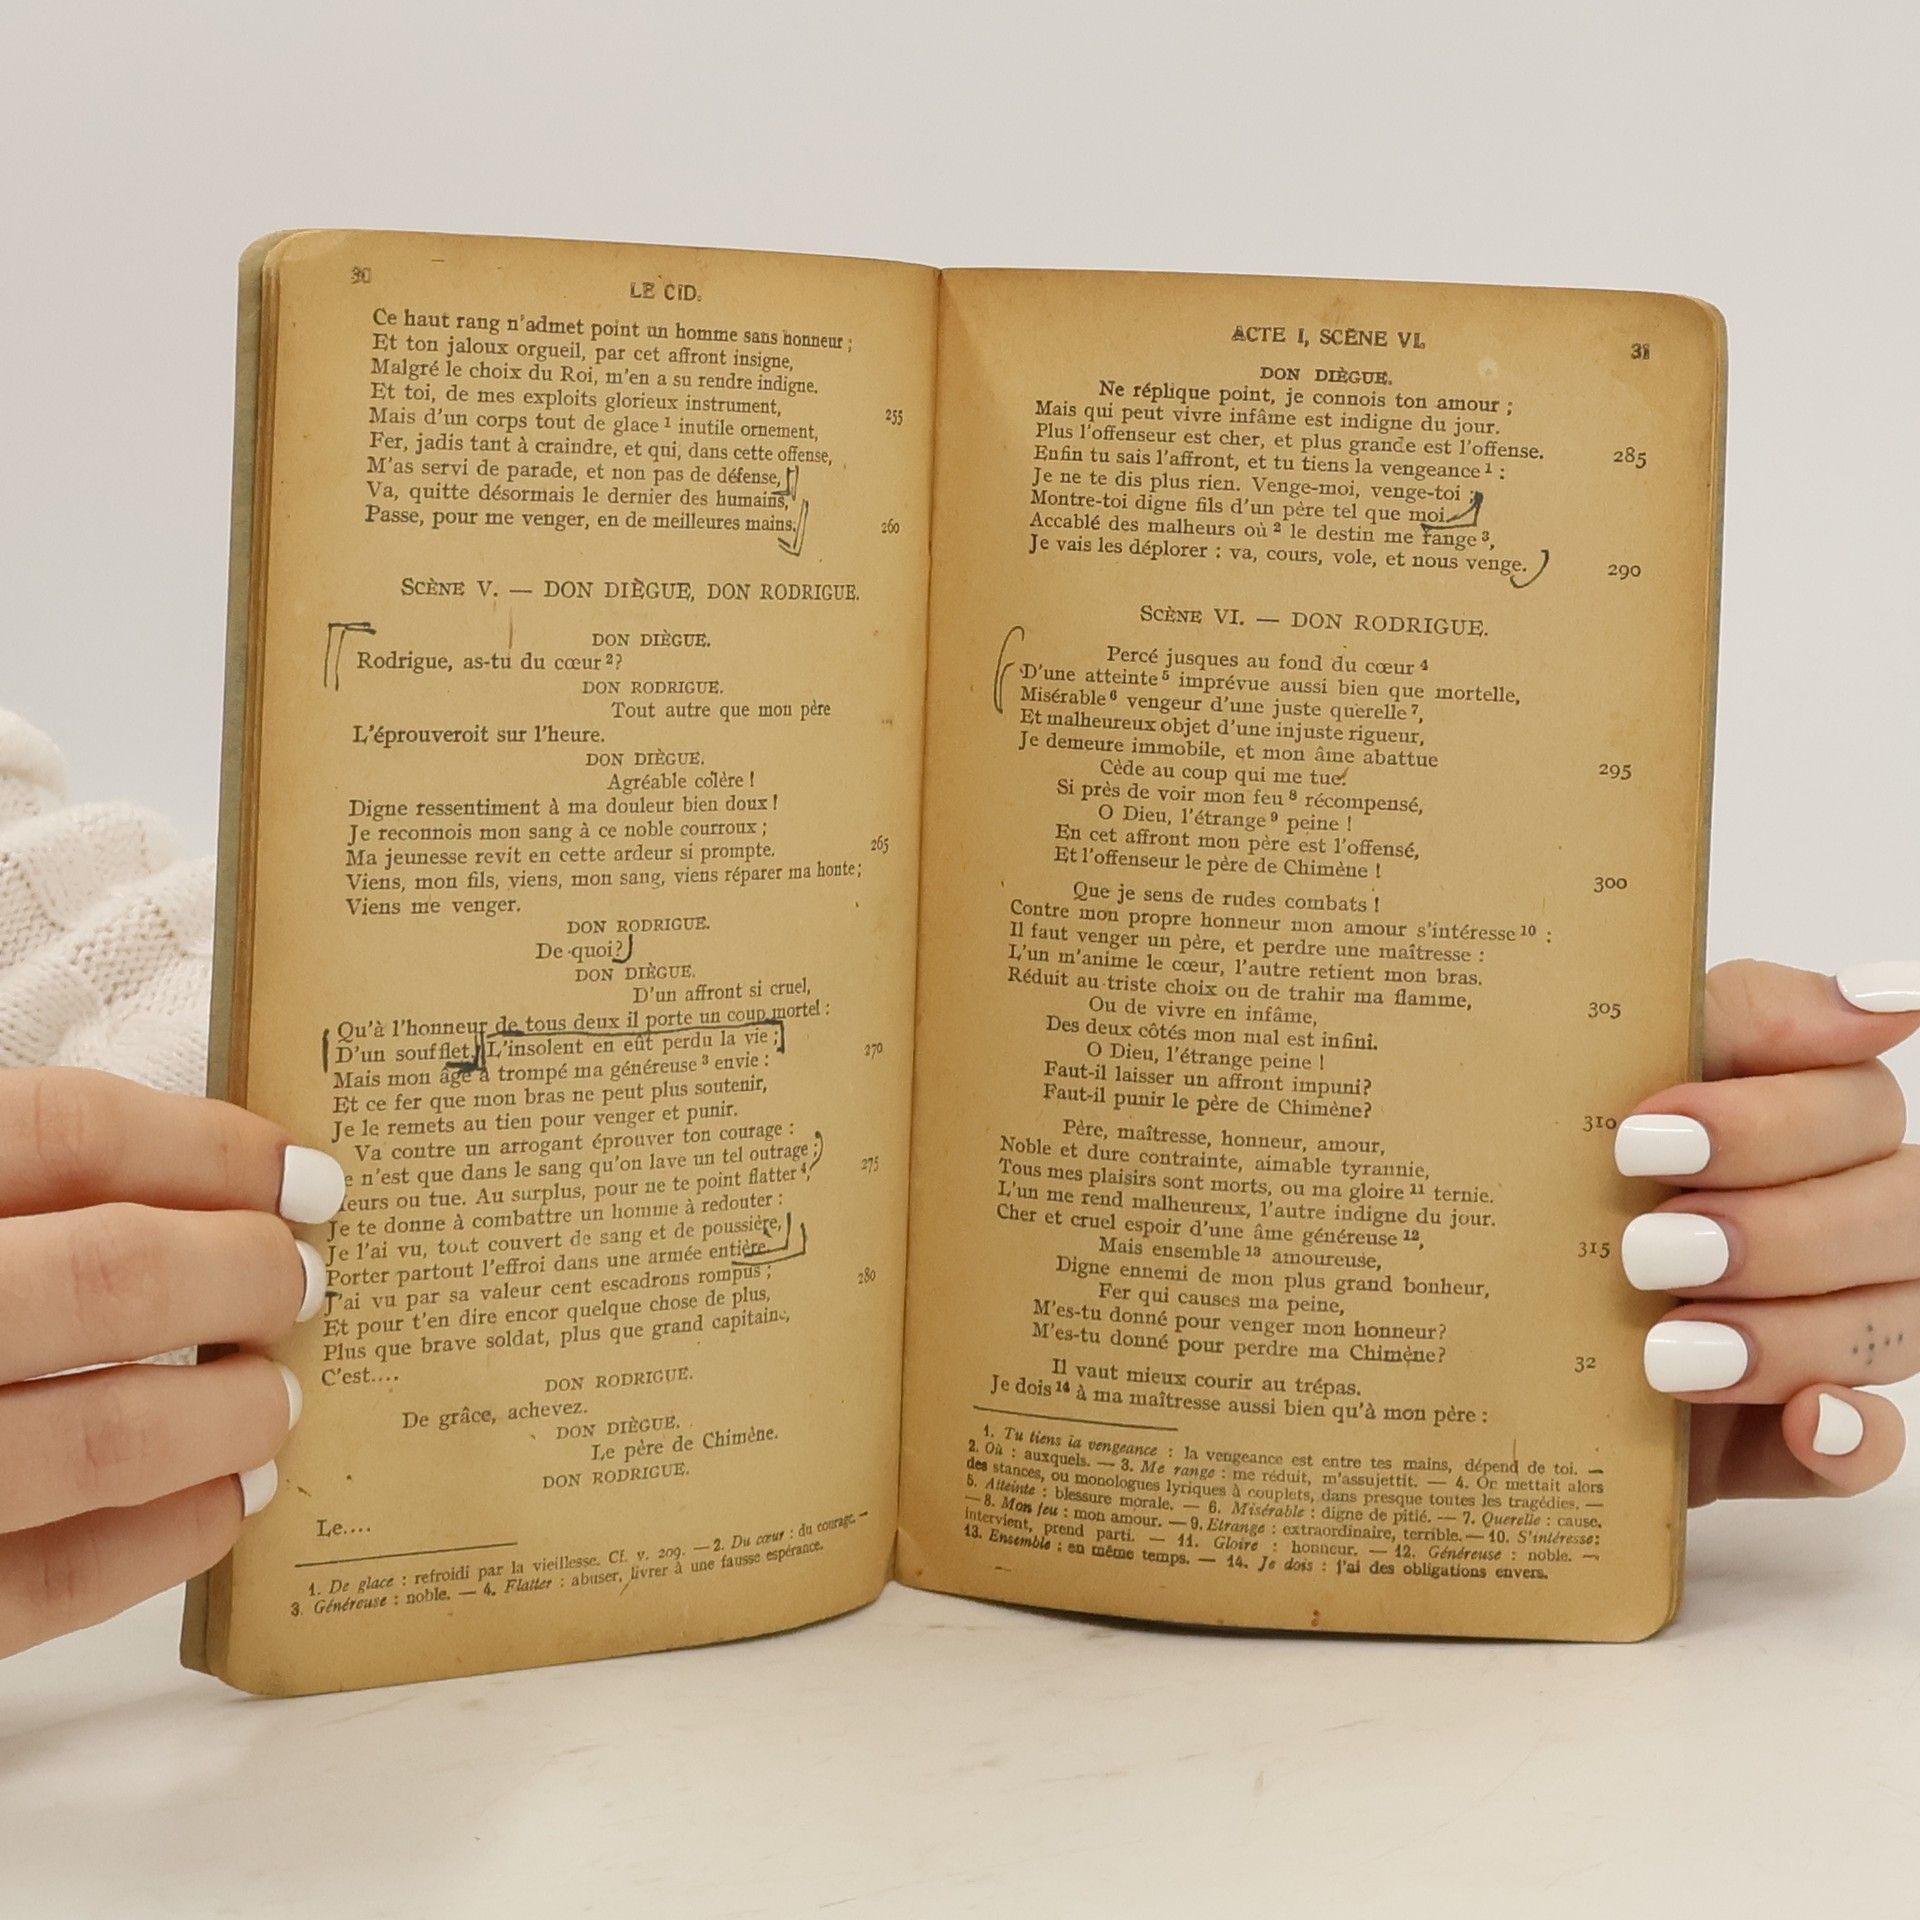 30
LE CID.
Ce haut rang n'admet point un homme sans honneur ;
Et ton jaloux orgueil, par cet affront insigne,
Malgré le choix du Roi, m'en a su rendre indigne.
Et toi, de mes exploits glorieux instrument,
255
Mais d'un corps tout de glace ¹ inutile ornement,
Fer, jadis tant à craindre, et qui, dans cette offense,
M'as servi de parade, et non pas de défense,
Va, quitte désormais le dernier des humains,
Passe, pour me venger, en de meilleures mains.
260
SCÈNE V. — DON DIÈGUE, DON RODRIGUE.
DON DIÈGUE.
Rodrigue, as-tu du cœur ²?
DON RODRIGUE.
Tout autre que mon père
L'éprouveroit sur l'heure.
DON DIÈGUE.
Agréable colère !
Digne ressentiment à ma douleur bien doux !
Je reconnois mon sang à ce noble courroux ;
Ma jeunesse revit en cette ardeur si prompte.
265
Viens, mon fils, viens, mon sang, viens réparer ma honte ;
Viens me venger.
DON RODRIGUE.
De quoi?
DON DIÈGUE.
D'un affront si cruel,
Qu'à l'honneur de tous deux il porte un coup mortel :
D'un soufflet. L'insolent en eût perdu la vie ;
270
Mais mon âge a trompé ma généreuse ³ envie :
Et ce fer que mon bras ne peut plus soutenir,
Je le remets au tien pour venger et punir.
Va contre un arrogant éprouver ton courage :
e n'est que dans le sang qu'on lave un tel outrage ;
275
eurs ou tue. Au surplus, pour ne te point flatter ⁴,
Je te donne à combattre un homme à redouter :
Je l'ai vu, tout couvert de sang et de poussière,
Porter partout l'effroi dans une armée entière.
J'ai vu par sa valeur cent escadrons rompus ;
280
Et pour t'en dire encor quelque chose de plus,
Plus que brave soldat, plus que grand capitaine,
C'est....
DON RODRIGUE.
De grâce, achevez.
DON DIÈGUE.
Le père de Chimène.
DON RODRIGUE.
Le....
1. De glace : refroidi par la vieillesse. Cf. v. 209. — 2. Du cœur : du courage. —
3. Généreuse : noble. — 4. Flatter : abuser, livrer à une fausse espérance.
ACTE I, SCÈNE VI.
31
DON DIÈGUE.
Ne réplique point, je connois ton amour ;
Mais qui peut vivre infâme est indigne du jour.
Plus l'offenseur est cher, et plus grande est l'offense.
285
Enfin tu sais l'affront, et tu tiens la vengeance ¹ :
Je ne te dis plus rien. Venge-moi, venge-toi ;
Montre-toi digne fils d'un père tel que moi.
Accablé des malheurs où ² le destin me range ³,
Je vais les déplorer : va, cours, vole, et nous venge.
290
SCÈNE VI. — DON RODRIGUE.
Percé jusques au fond du cœur ⁴
D'une atteinte ⁵ imprévue aussi bien que mortelle,
Misérable ⁶ vengeur d'une juste querelle ⁷,
Et malheureux objet d'une injuste rigueur,
Je demeure immobile, et mon âme abattue
295
Cède au coup qui me tue.
Si près de voir mon feu ⁸ récompensé,
O Dieu, l'étrange ⁹ peine !
En cet affront mon père est l'offensé,
Et l'offenseur le père de Chimène !
300
Que je sens de rudes combats !
Contre mon propre honneur mon amour s'intéresse ¹⁰ :
Il faut venger un père, et perdre une maîtresse :
L'un m'anime le cœur, l'autre retient mon bras.
Réduit au triste choix ou de trahir ma flamme,
305
Ou de vivre en infâme,
Des deux côtés mon mal est infini.
O Dieu, l'étrange peine !
Faut-il laisser un affront impuni?
Faut-il punir le père de Chimène?
310
Père, maîtresse, honneur, amour,
Noble et dure contrainte, aimable tyrannie,
Tous mes plaisirs sont morts, ou ma gloire ¹¹ ternie.
L'un me rend malheureux, l'autre indigne du jour.
Cher et cruel espoir d'une âme généreuse ¹²,
315
Mais ensemble ¹³ amoureuse,
Digne ennemi de mon plus grand bonheur,
Fer qui causes ma peine,
M'es-tu donné pour venger mon honneur?
M'es-tu donné pour perdre ma Chimène?
32
Il vaut mieux courir au trépas.
Je dois ¹⁴ à ma maîtresse aussi bien qu'à mon père :
1. Tu tiens la vengeance : la vengeance est entre tes mains, dépend de toi. —
2. Où : auxquels. — 3. Me range : me réduit, m'assujettit. — 4. On mettait alors
des stances, ou monologues lyriques à couplets, dans presque toutes les tragédies. —
5. Atteinte : blessure morale. — 6. Misérable : digne de pitié. — 7. Querelle : cause.
— 8. Mon feu : mon amour. — 9. Etrange : extraordinaire, terrible. — 10. S'intéresse :
intervient, prend parti. — 11. Gloire : honneur. — 12. Généreuse : noble. —
13. Ensemble : en même temps. — 14. Je dois : j'ai des obligations envers.